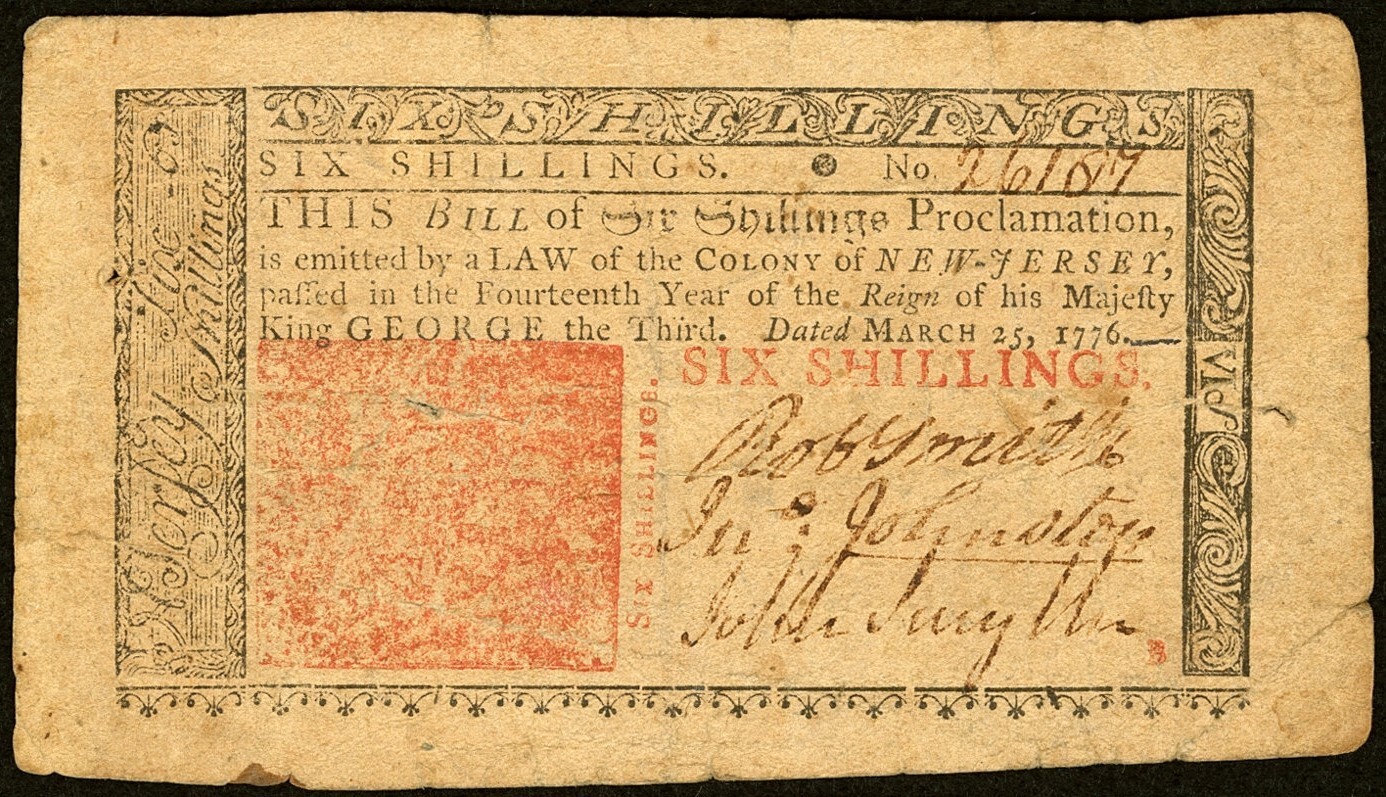 SIX SHILLINGS
SIX SHILLINGS. No. 26187
THIS BILL of Six Shillings Proclamation,
is emitted by a LAW of the COLONY of NEW-JERSEY,
paſſed in the Fourteenth Year of the Reign of his Majeſty
King GEORGE the Third. Dated MARCH 25, 1776.
SIX SHILLINGS.
SIX SHILLINGS.
Rob Smith
Jnº: Johnston
John Smyth
B
Jerſey
Shillings
VIſ